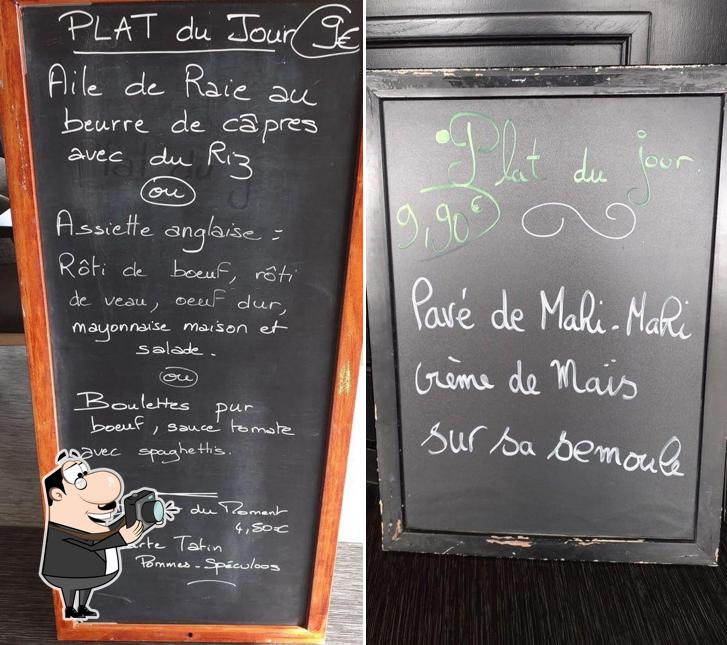 PLAT du Jour 9€
Aile de Raie au
beurre de câpres
avec du Riz
ou
Assiette anglaise :
Rôti de boeuf, rôti
de veau, oeuf dur,
mayonnaise maison et
salade.
ou
Boulettes pur
boeuf, sauce tomate
avec spaghettis.
du Moment
4,50€
Tatin
Pommes - Spéculoos
Plat du jour
9,90€
Pavé de Mahi-Mahi
Crème de Maïs
sur sa semoule